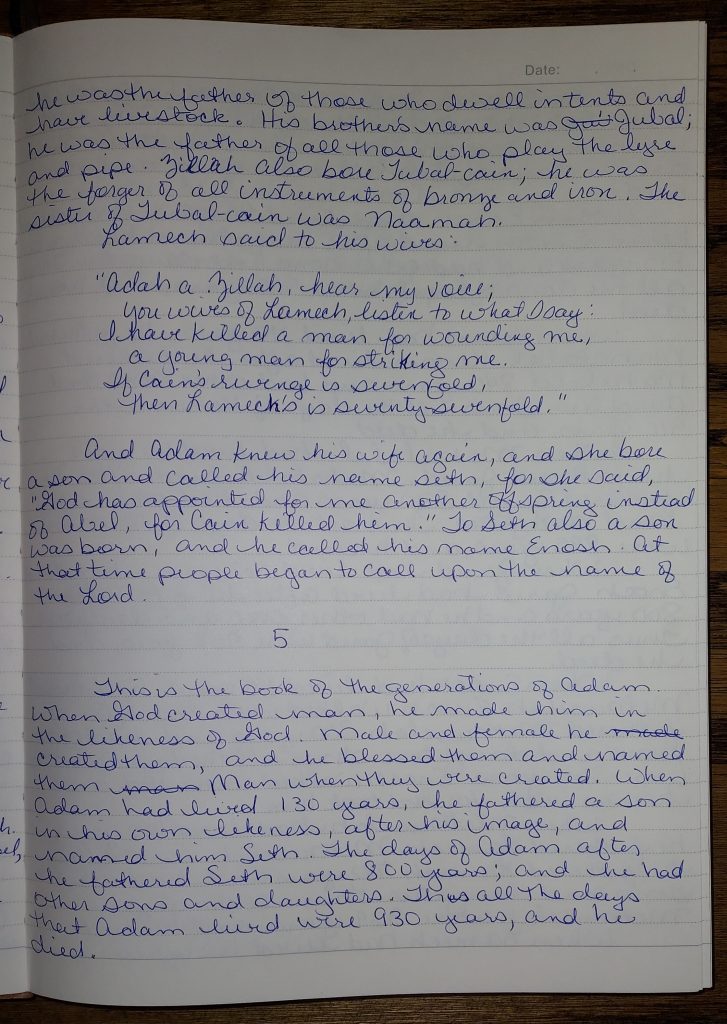 Date:
he was the father of those who dwell in tents and
have livestock. His brother's name was Jubal;
he was the father of all those who play the lyre
and pipe. Zillah also bore Tubal-cain; he was
the forger of all instruments of bronze and iron. The
sister of Tubal-cain was Naamah.
Lamech said to his wives:
"Adah a Zillah, hear my voice;
you wives of Lamech, listen to what I say:
I have killed a man for wounding me,
a young man for striking me.
If Cain's revenge is sevenfold,
then Lamech's is seventy-sevenfold."
And Adam knew his wife again, and she bore
a son and called his name Seth, for she said,
"God has appointed for me another offspring instead
of Abel, for Cain killed him." To Seth also a son
was born, and he called his name Enosh. At
that time people began to call upon the name of
the Lord.
5
This is the book of the generations of Adam.
When God created man, he made him in
the likeness of God. Male and female he made
created them, and he blessed them and named
them man Man when they were created. When
Adam had lived 130 years, he fathered a son
in his own likeness, after his image, and
named him Seth. The days of Adam after
he fathered Seth were 800 years; and he had
other sons and daughters. Thus all the days
that Adam lived were 930 years, and he
died.